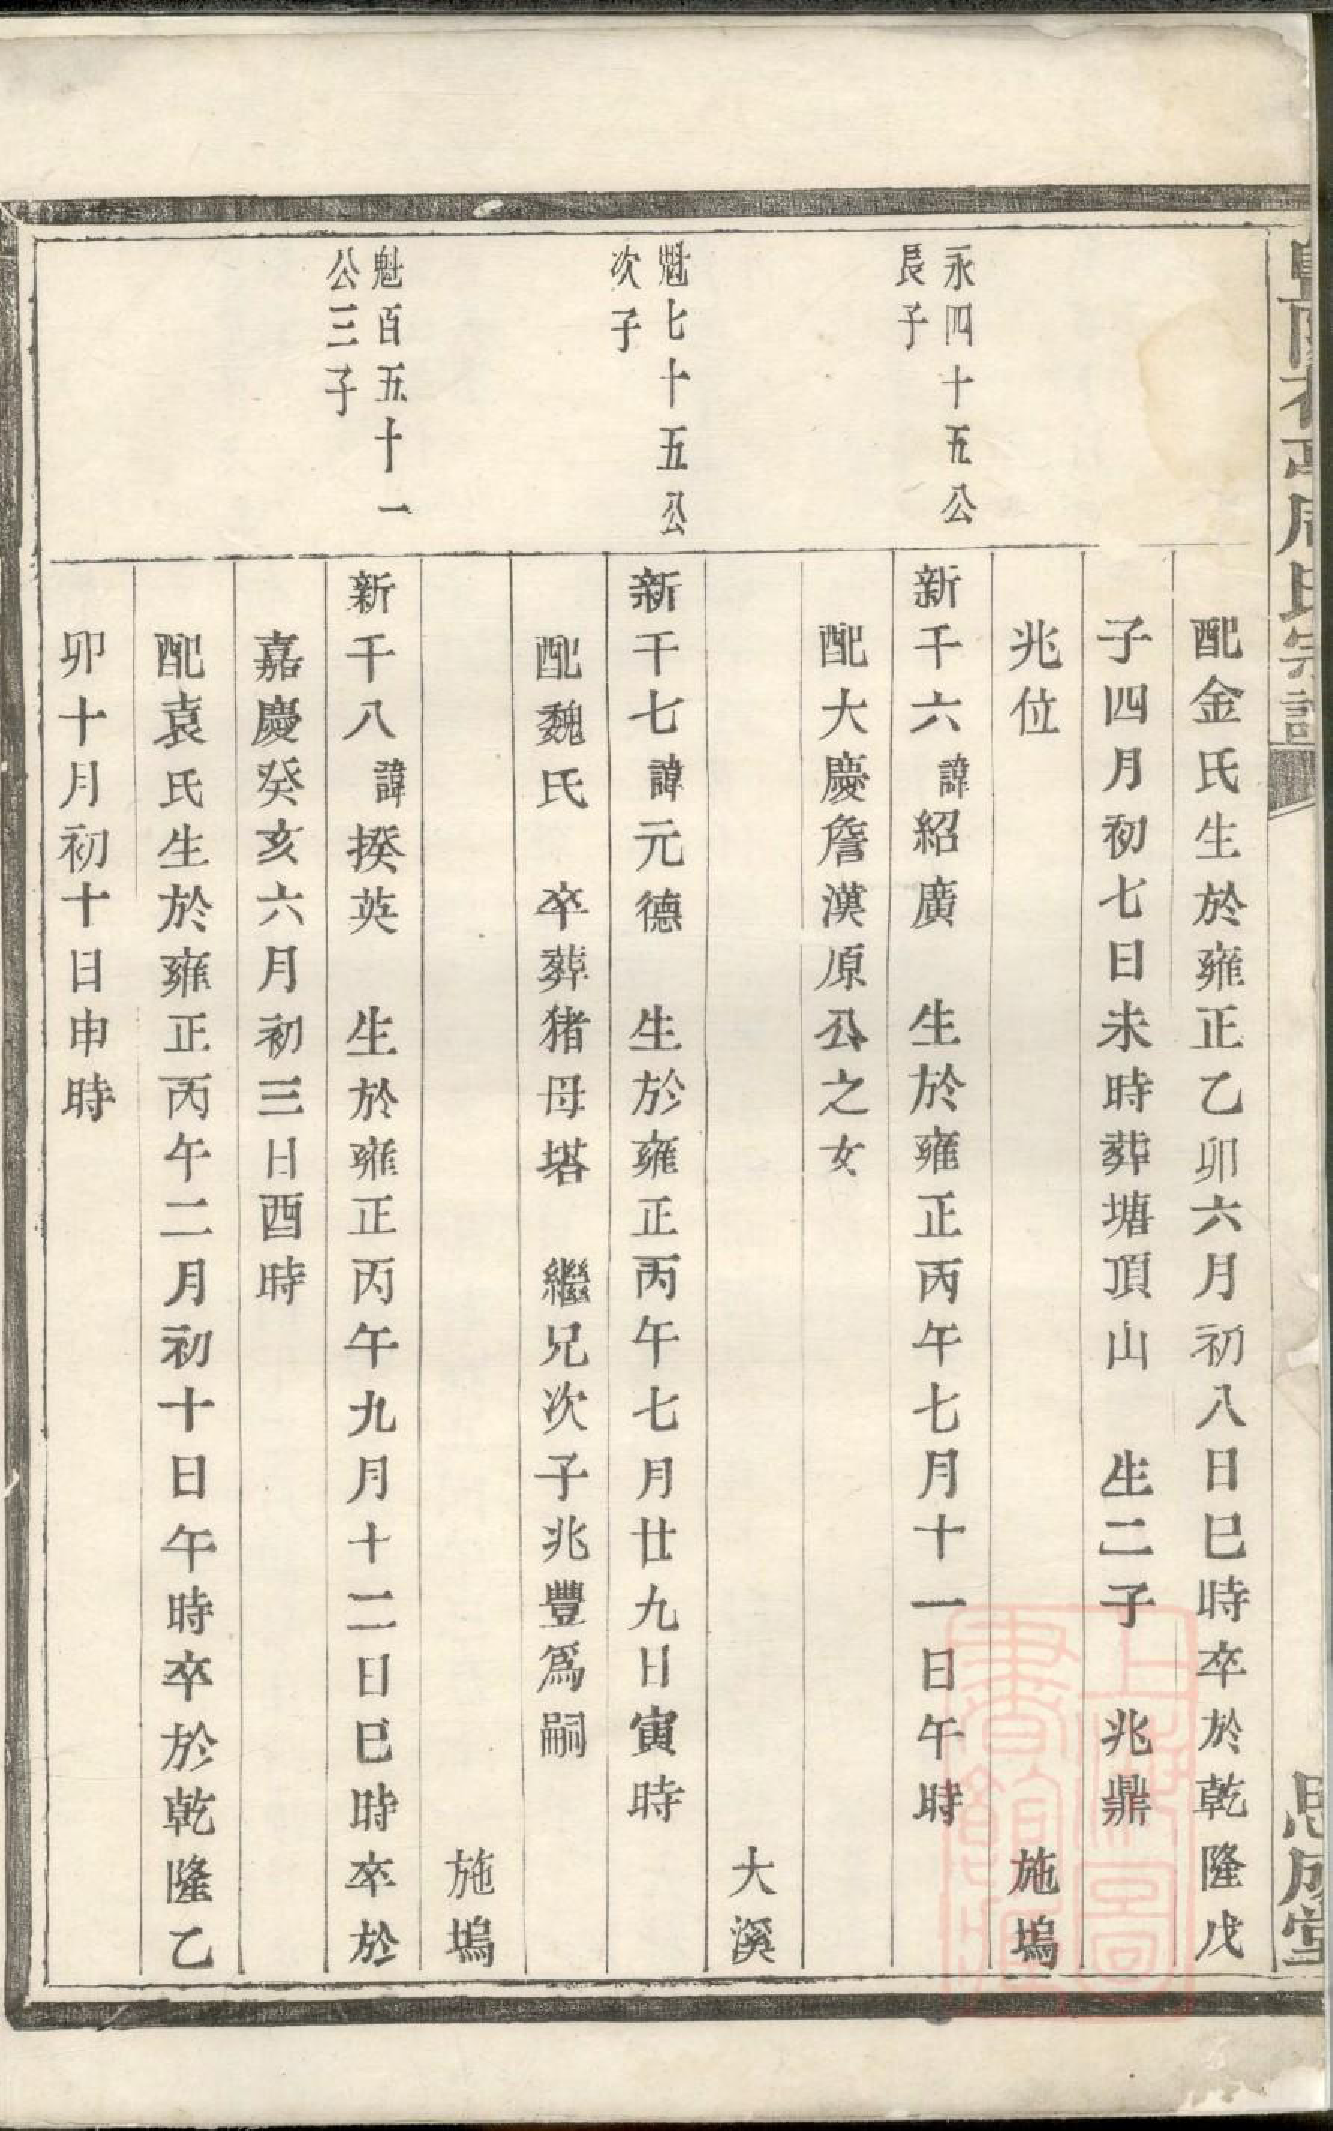 周氏宗譜
思成堂
配金氏生於雍正乙卯六月初八日巳時卒於乾隆戊
子四月初七日未時葬塘頂山 生二子 兆鼎
兆位 施塢
永四十五公
長子
新千六諱紹廣 生於雍正丙午七月十一日午時
配大慶詹漢原公之女
大溪
魁七十五公
次子
新千七諱元德 生於雍正丙午七月廿九日寅時
配魏氏 卒葬猪母塔 繼兄次子兆豐爲嗣
施塢
魁百五十一
公三子
新千八諱揆英 生於雍正丙午九月十二日巳時卒於
嘉慶癸亥六月初三日酉時
配袁氏生於雍正丙午二月初十日午時卒於乾隆乙
卯十月初十日申時
上海圖書館藏